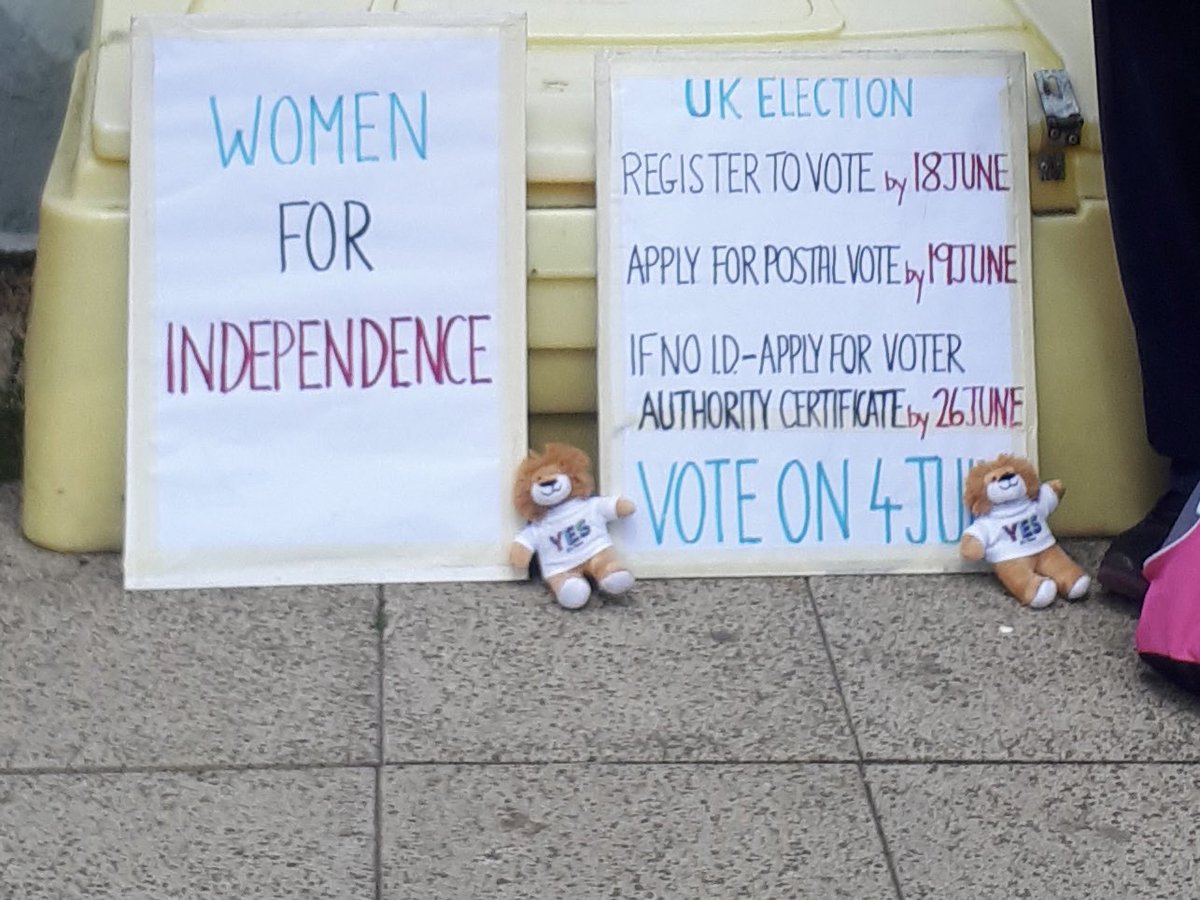 WOMEN
FOR
INDEPENDENCE
UK ELECTION
REGISTER TO VOTE by 18 JUNE
APPLY FOR POSTAL VOTE by 19 JUNE
IF NO I.D.-APPLY FOR VOTER
AUTHORITY CERTIFICATE by 26 JUNE
VOTE ON 4 JU
YES
YES